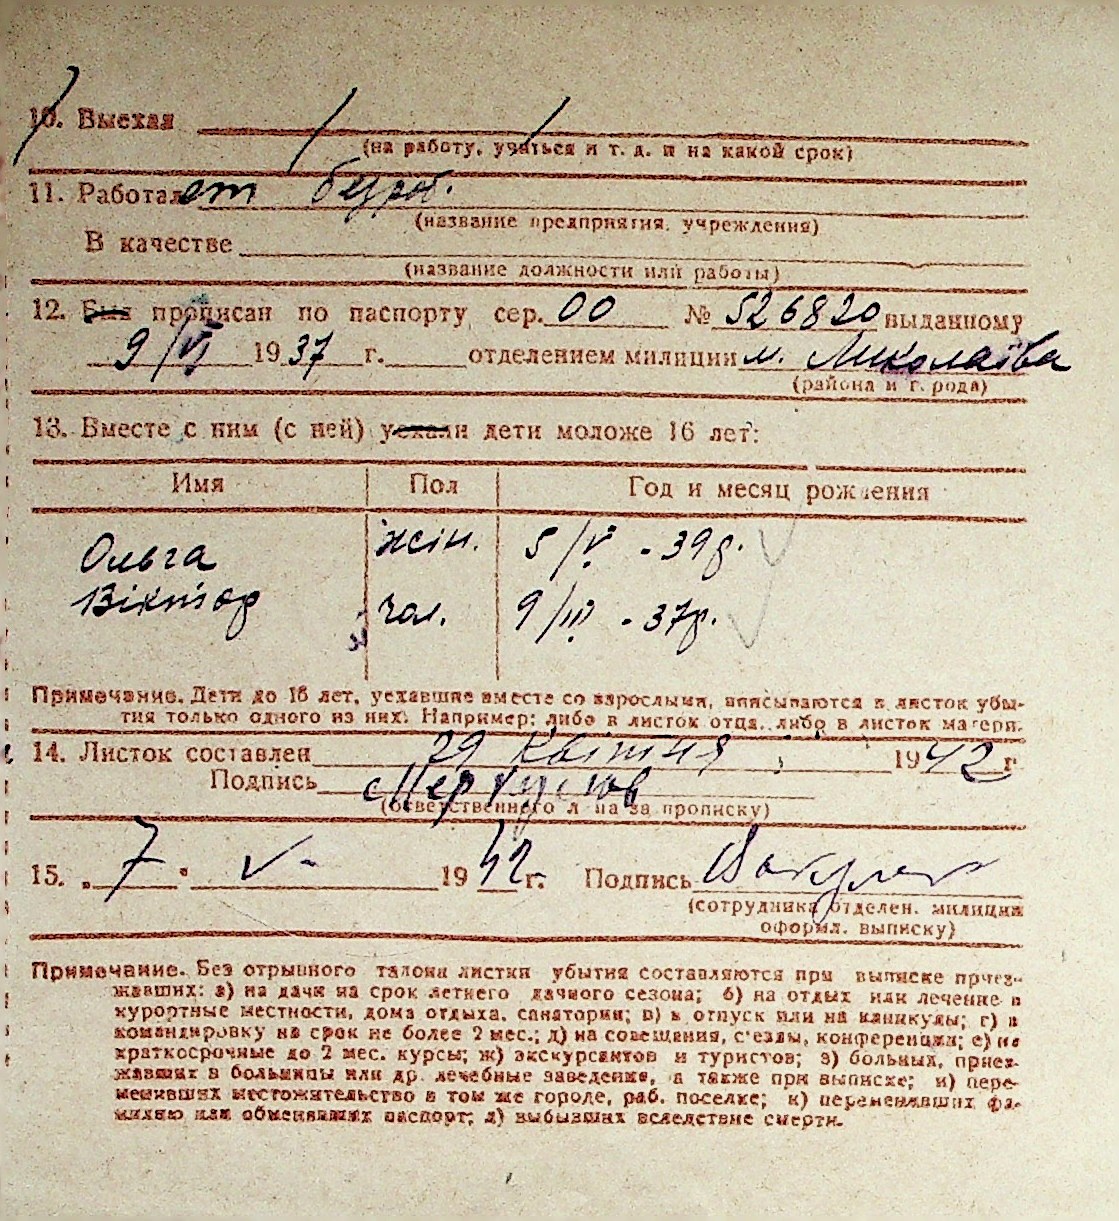 10. Выехал
(на работу, учиться и т. д. и на какой срок)
11. Работает безроб.
(название предприятия, учреждения)
В качестве
(название должности или работы)
12. Был прописан по паспорту сер. 00 № 526820 выданному
9/VI 1937 г. отделением милиции м. Миколаїва
(района и города)
13. Вместе с ним (с ней) уехали дети моложе 16 лет:
Имя Пол Год и месяц рождения
Ольга жін. 5/V - 39р.
Віктор чол. 9/III - 37р.
Примечание. Дети до 16 лет, уехавшие вместе со взрослыми, вписываются в листок убы-
тия только одного из них. Например: либо в листок отца, либо в листок матери.
14. Листок составлен 29 квітня 1942 г.
Подпись
(ответственного лица за прописку)
15. „7" V - 1942 г. Подпись
(сотрудника отделен. милиции
оформл. выписку)
Примечание. Без отрывного талона листки убытия составляются при выписке приез-
жавших: а) на дачи на срок летнего дачного сезона; б) на отдых или лечение в
курортные местности, дома отдыха, санатории; в) в отпуск или на каникулы; г) в
командировку на срок не более 2 мес.; д) на совещания, съезды, конференции; е) на
краткосрочные до 2 мес. курсы; ж) экскурсантов и туристов; з) больных, приез-
жавших в больницы или др. лечебные заведения, а также при выписке; и) пере-
менивших местожительство в том же городе, раб. поселке; к) переменявших фа-
милию или обменявших паспорт; л) выбывших вследствие смерти.